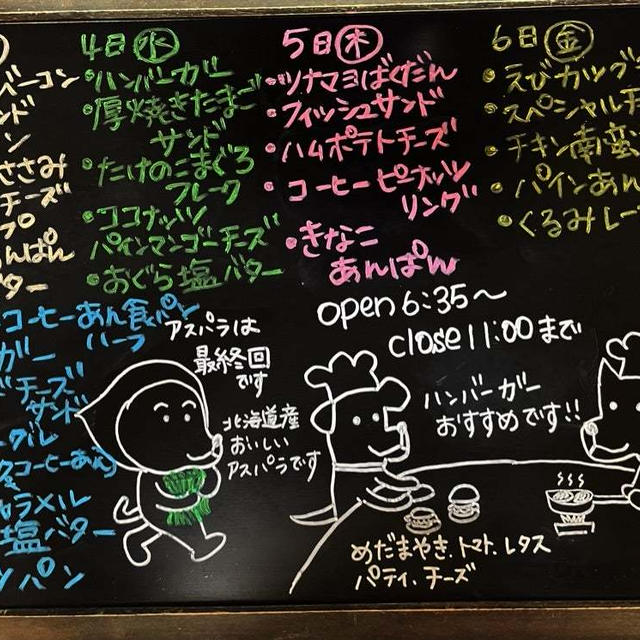 ベーコン
ンド
ン
ささみ
チーズ
プ
あんぱん
ター
4日㊌
・ハンバーガー
・厚焼きたまご
サンド
・たけのこまぐろ
フレーク
・ココナッツ
パインマンゴーチーズ
・おぐら塩バター
5日㊍
・ツナマヨばくだん
・フィッシュサンド
・ハムポテトチーズ
・コーヒーピーナッツ
リング
・きなこ
あんぱん
6日㊎
・えびカツグ
・スペシャルチ
・チキン南蛮
・パインあん
・くるみレー
open 6:35〜
close 11:00まで
コーヒーあん食パン
ハーフ
ガー
ドチーズ
サンド
グル
コーヒーあん)
キャラメル
塩バター
ツパン
アスパラは
最終回
です
北海道産
おいしい
アスパラです
ハンバーガー
おすすめです!!
めだまやき、トマト、レタス
パティ、チーズ